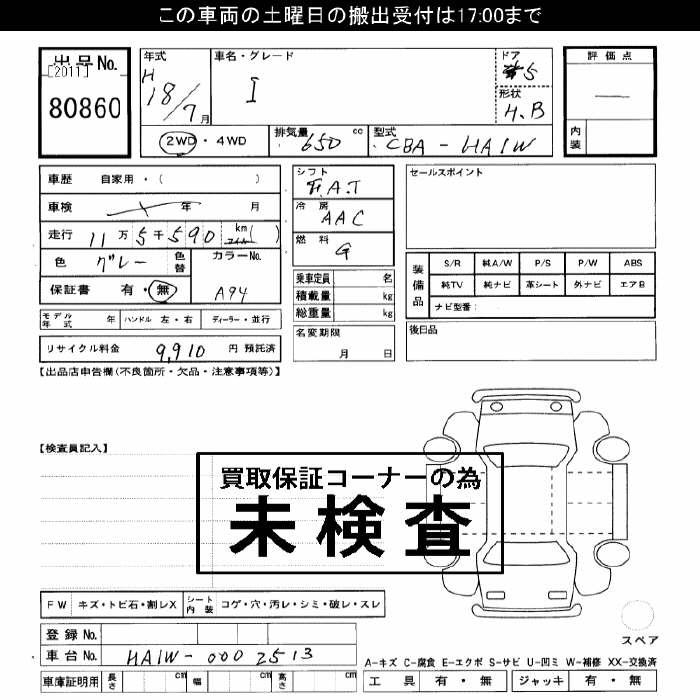 この車両の土曜日の搬出受付は17:00まで
出品No.
[2011]
80860
年式
H
18/7月
車名・グレード
I
ドア
5
形状
H.B
評価点
―
内装
2WD・4WD
排気量 650 cc
型式 CBA-HA1W
車歴 自家用・( )
車検 年 月
走行 11万5千590 km マイル( )
色 グレー
色替
カラーNo.
A94
保証書 有・無
シフト
F.A.T
冷房
AAC
燃料
G
乗車定員 名
積載量 kg
総重量 kg
名変期限
月 日
セールスポイント
装備品
S/R 純A/W P/S P/W ABS
純TV 純ナビ 革シート 外ナビ エアB
ナビ型番:
後日品
モデル年式 年 ハンドル 左・右 ディーラー・並行
リサイクル料金 9,910 円 預託済
【出品店申告欄(不良箇所・欠品・注意事項等)】
【検査員記入】
買取保証コーナーの為
未検査
FW キズ・トビ石・割レX シート内装 コゲ・穴・汚レ・シミ・破レ・スレ
スペア
登録No.
車台No. HA1W-0002513
車庫証明用 長さ cm 幅 cm 高さ cm
A-キズ C-腐食 E-エクボ S-サビ U-凹ミ W-補修 XX-交換済
工具 有・無 ジャッキ 有・無